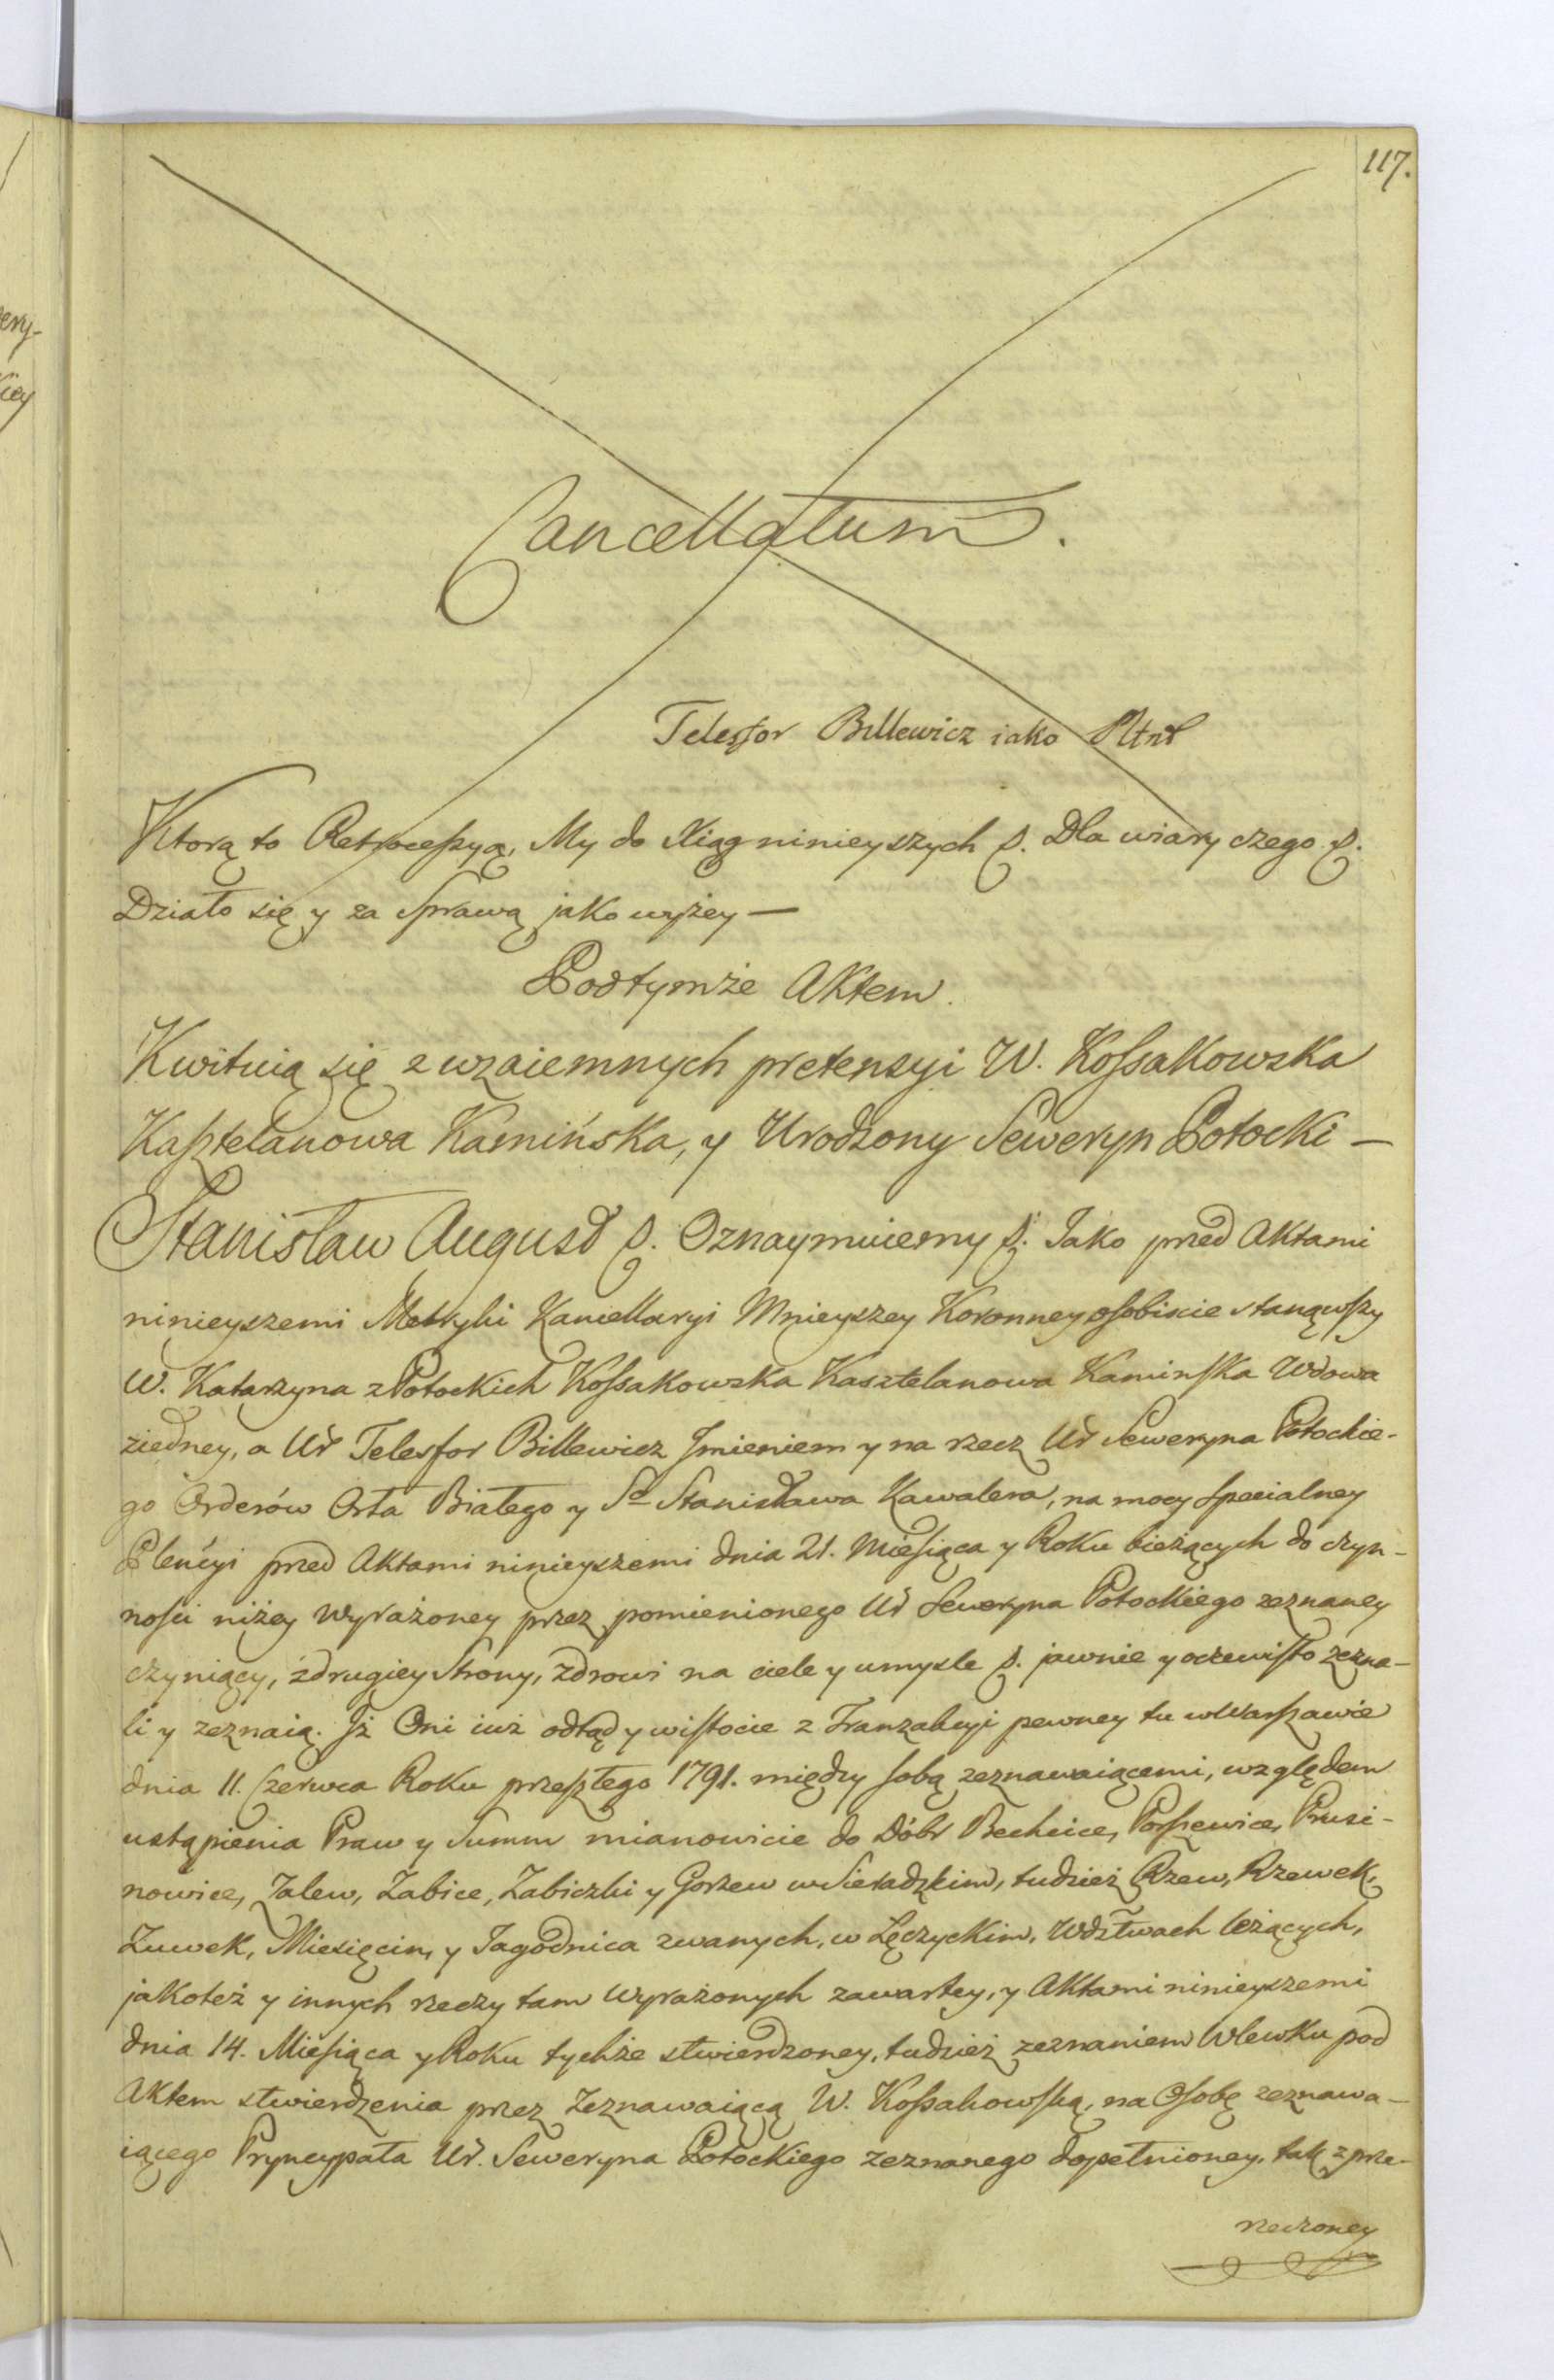 117.
Cancellatum.
Telesfor Billewicz iako Pltnt
Ktorą to Retrocessyą, My do Xiąg ninieyszych p. Dla wiary czego p.
Działo się y za Sprawą jako wyżey —
Podtymże Aktem.
Kwituią się z wzaiemnych pretensyi W. Kossakowska
Kasztelanowa Kamińska, y Urodzony Seweryn Potocki —
Stanisław August p. Oznaymuiemy p. Jako przed Aktami
ninieyszemi Metryki Kancellaryi Mnieyszey Koronney osobiście stanąwszy
W. Katarzyna z Potockich Kossakowska Kasztelanowa Kaminska Wdowa
ziedney, a Ur Telesfor Billewicz Jmieniem y na rzecz Ur Seweryna Potockie-
go Orderów Orła Białego y Sº Stanisława Kawalera, na mocy specialney
Plencyi przed Aktami ninieyszemi dnia 21. Miesiąca y Roku bieżących do czyn-
nosci niżey wyrażoney przez pomienionego Ur Seweryna Potockiego zeznaney
czyniący, zdrugiey Strony, Zdrowi na ciele y umysle p. jawnie y oczewisto zezna-
li y zeznaią. Jż Oni iuż odtąd y wistocie z Tranzakcyi pewney tu w Warszawie
dnia 11. Czerwca Roku przeszłego 1791. między sobą zeznawaiącemi, względem
ustąpienia Praw y Summ mianowicie do Dóbr Bechcice, Porszewice, Prusi-
nowice, Zalew, Żabice, Żabiczki y Gorzew w Sieradzkim, tudzież Rzew, Rzewek,
Żuwek, Miesięcin, y Jagodnica zwanych, w Łęczyckim, Wdztwach leżących,
jakoteż y innych rzeczy tam wyrażonych zawartey, y Aktami ninieyszemi
dnia 14. Miesiąca y Roku tychże stwierdzoney, tudzież zeznaniem Wlewku pod
Aktem stwierdzenia przez Zeznawaiącą W. Kossakowską, na Osobę zeznawa-
iącego Pryncypała Ur. Seweryna Potockiego zeznanego dopełnioney, tak z prze-
rzeczoney